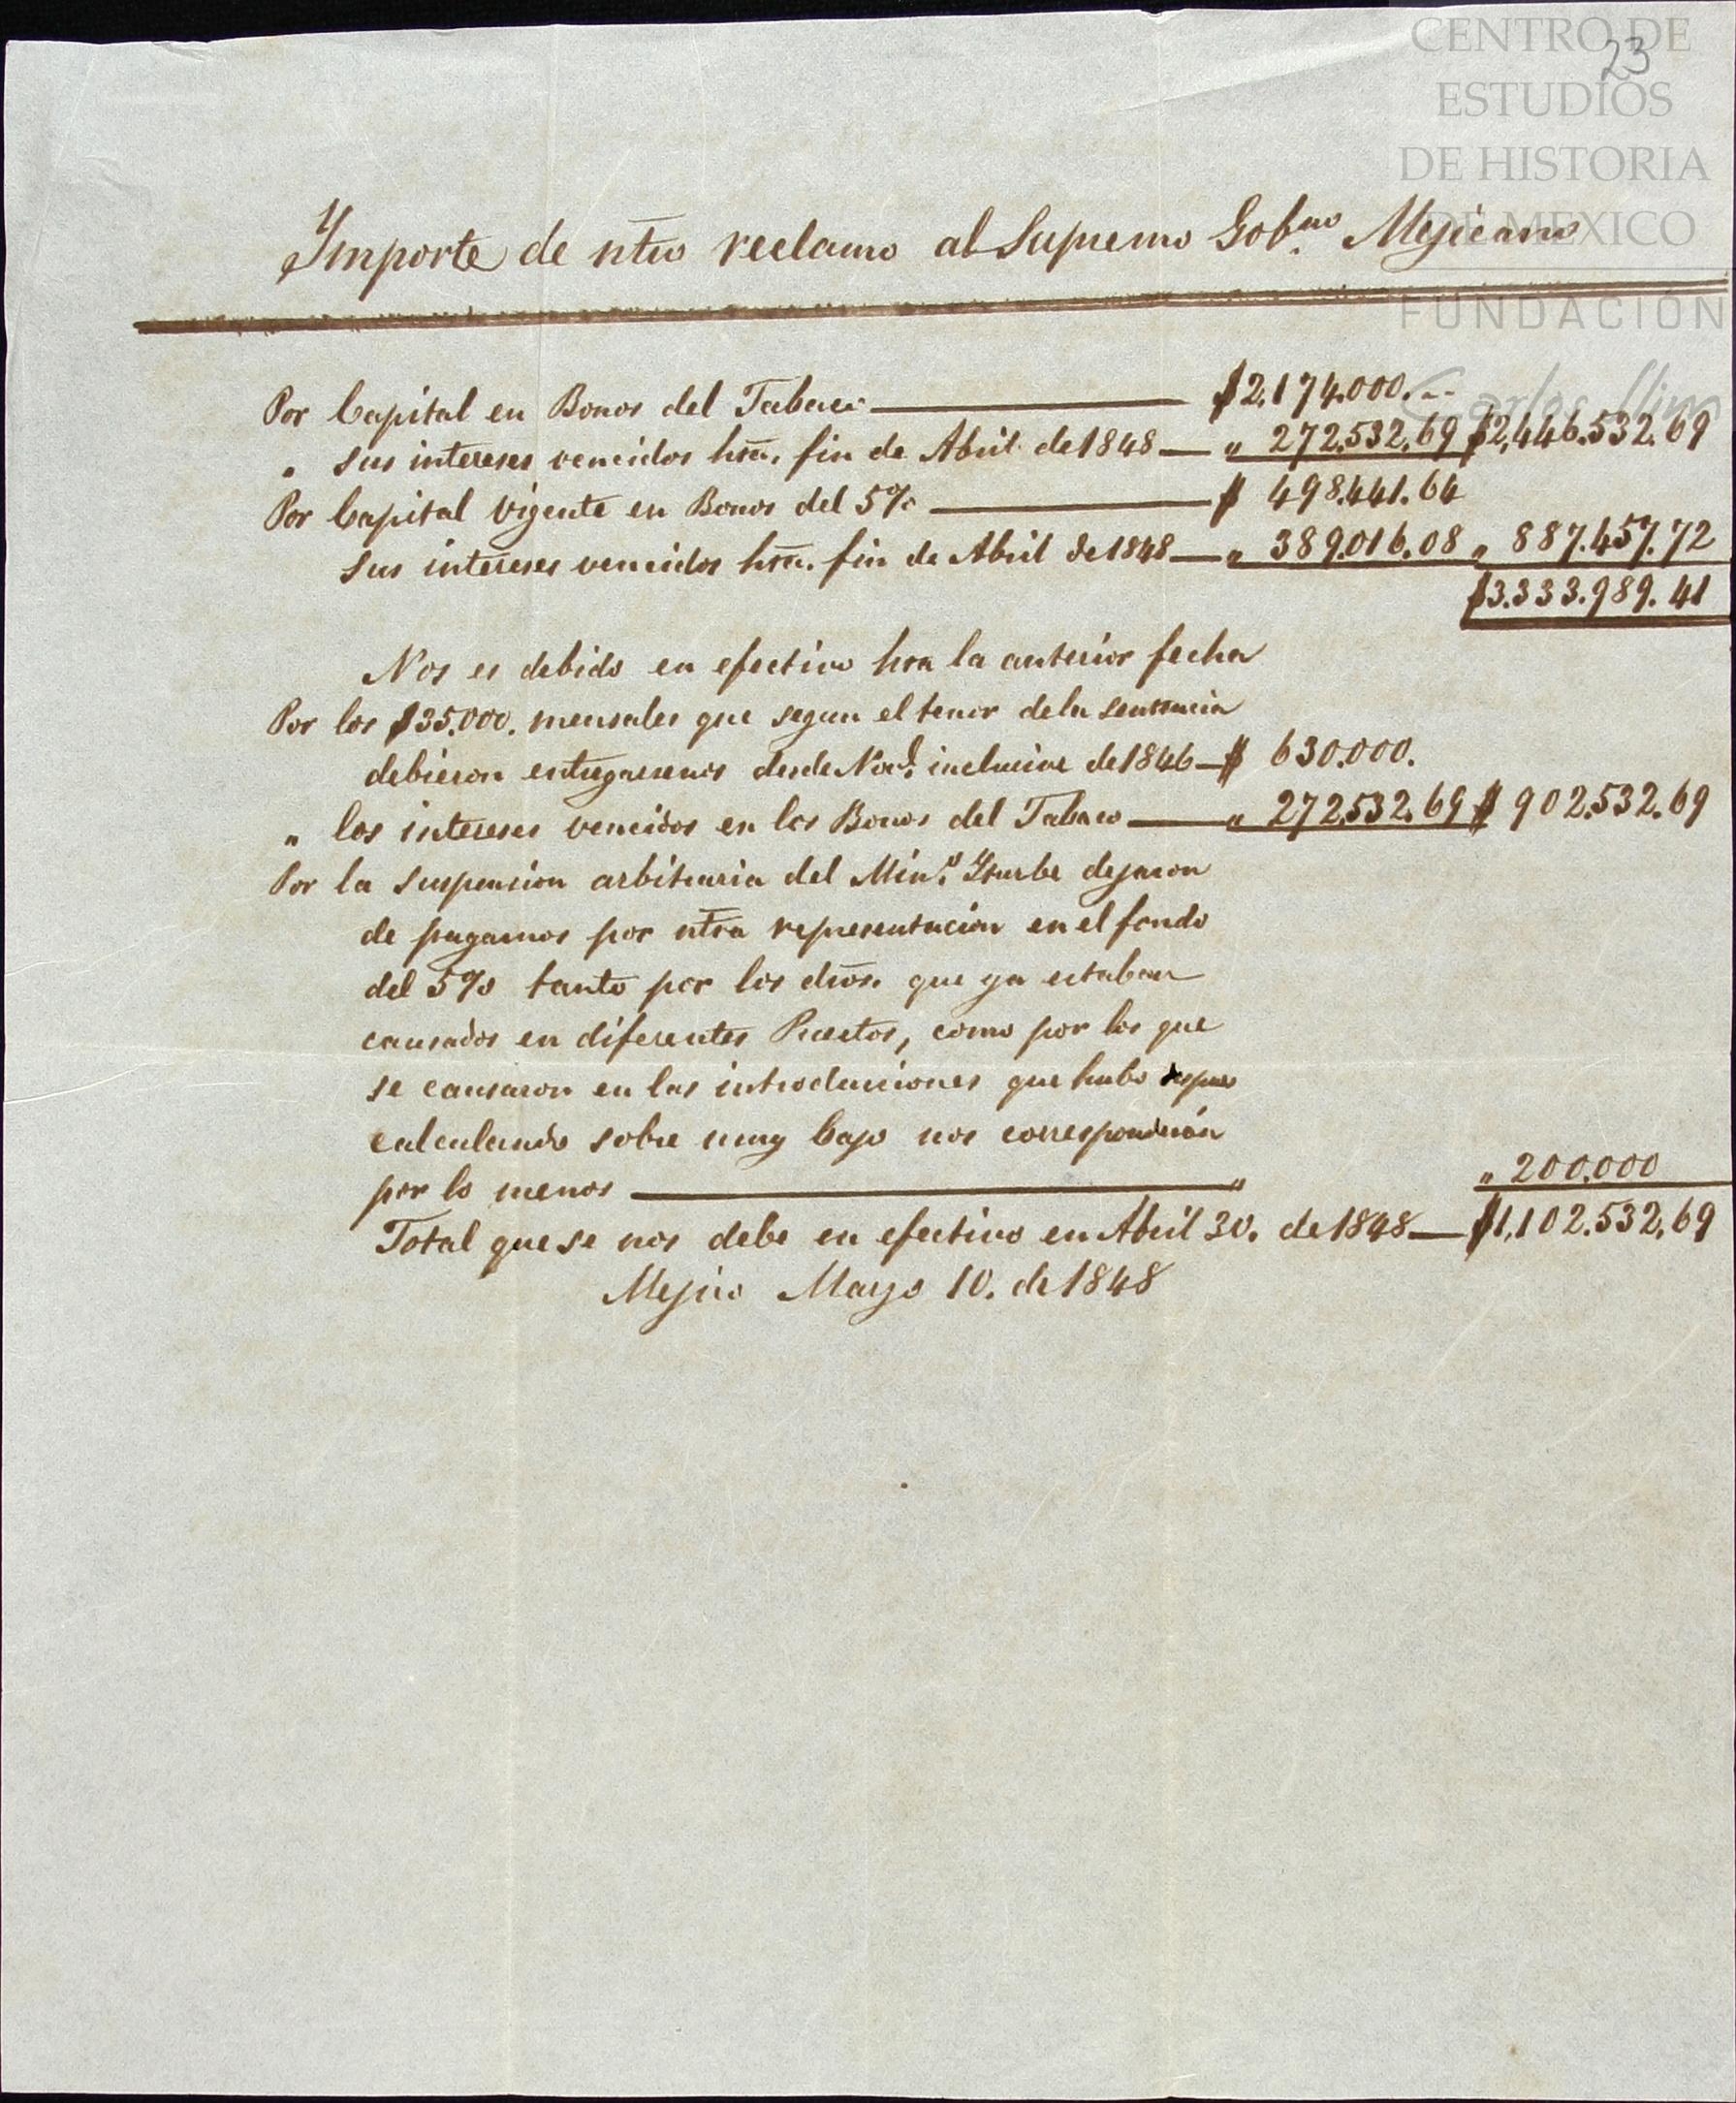 CENTRO DE
ESTUDIOS
DE HISTORIA
DE MEXICO
FUNDACIÓN
Carlos Slim
23
Ymporte de ntro reclamo al Supremo Gobno. Mejicano
Por Capital en Bonos del Tabaco — $2,174.000.--
" sus intereses vencidos hta. fin de Abril de 1848 — " 272.532.69 $2,446.532.69
Por Capital vigente en Bonos del 5% — $ 498.441.64
sus intereses vencidos hta. fin de Abril de 1848 — " 389.016.08 " 887.457.72
$3.333.989.41
Nos es debido en efectivo hta la anterior fecha
Por los $35.000. mensales que segun el tenor de la sentencia
debieron entregarsenos desde Nove. inclusive de 1846 — $ 630.000.
" los intereses vencidos en los Bonos del Tabaco — " 272.532.69 $ 902.532.69
Por la suspencion arbitraria del Mino. Yturbe dejaron
de pagarnos por ntra representacion en el fondo
del 5% tanto por los dros. que ya estaban
causados en diferentes Puertos, como por los que
se causaron en las introducciones que hubo despues
calculando sobre muy bajo nos correspondierón
por lo menos — " " 200.000
Total que se nos debe en efectivo en Abril 30. de 1848 — $1,102.532,69
Mejico Mayo 10. de 1848